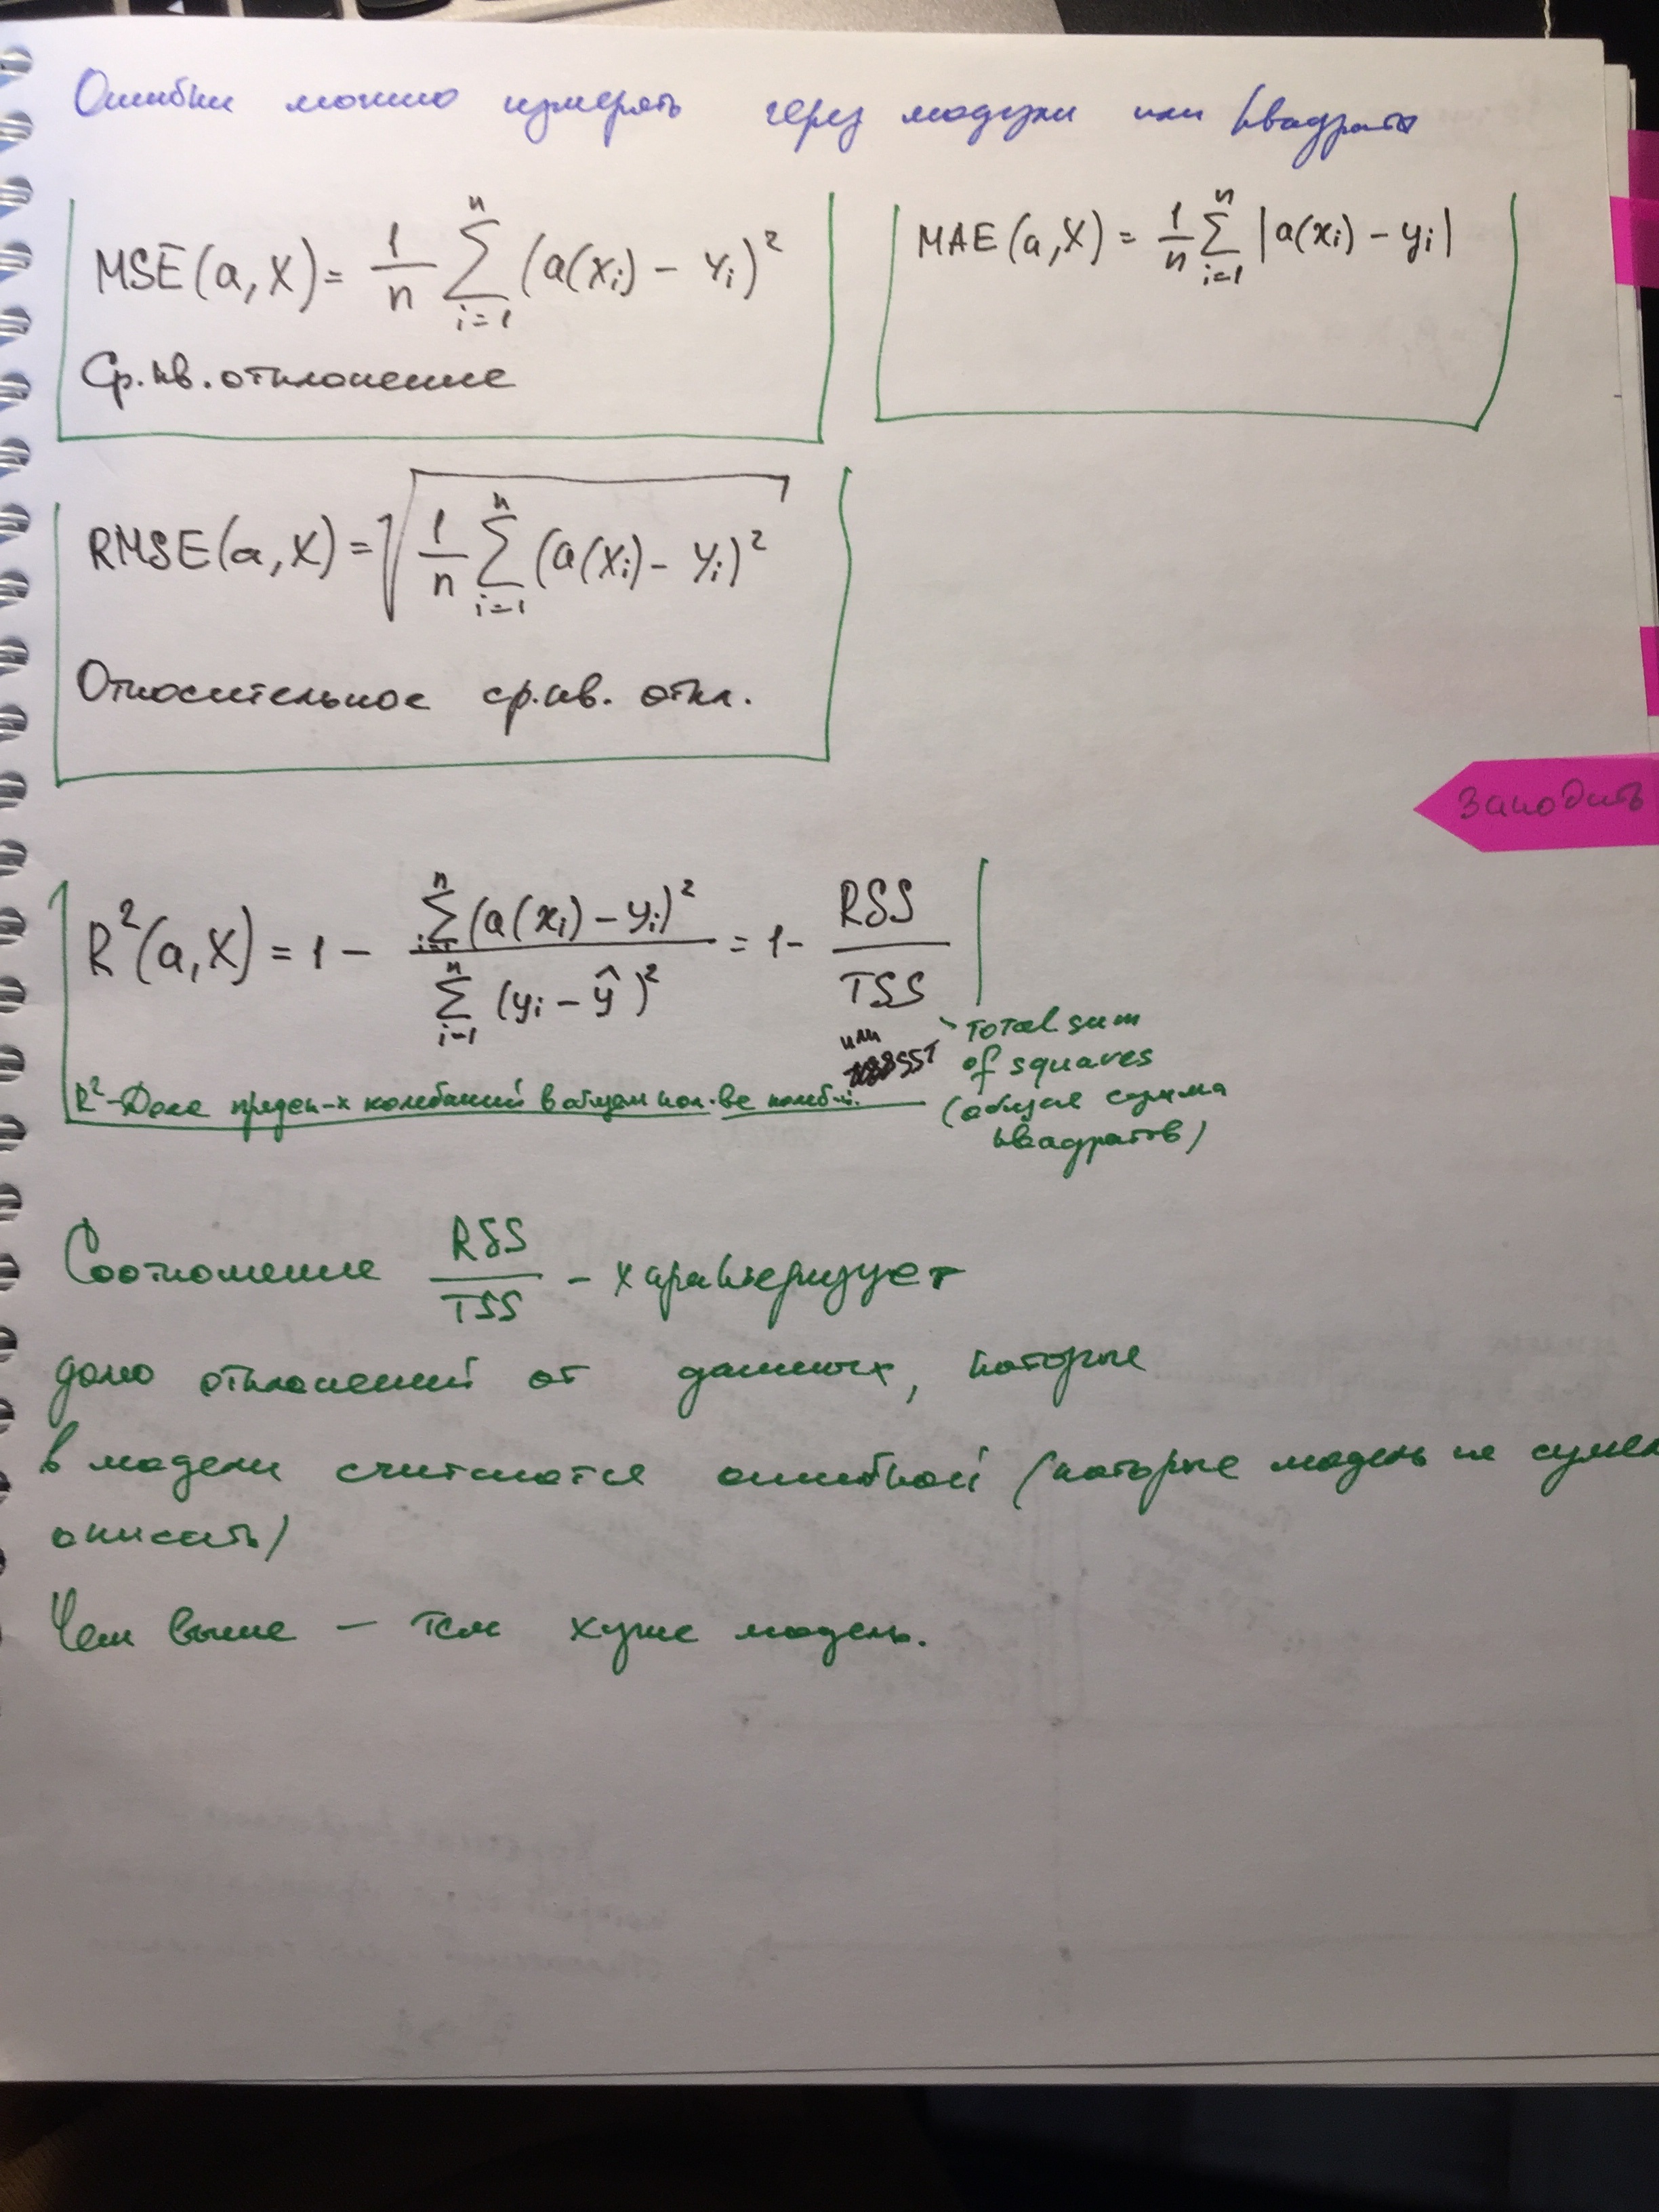 Ошибки можно измерять через модули или квадраты
MSE(a,X) = 1/n ∑_{i=1}^{n} (a(xᵢ) - yᵢ)²
Ср.кв.отклонение
MAE(a,X) = 1/n ∑_{i=1}^{n} |a(xᵢ) - yᵢ|
RMSE(a,X) = √(1/n ∑_{i=1}^{n} (a(xᵢ) - yᵢ)²)
Относительное ср.кв. откл.
Закодить
R²(a,X) = 1 - ∑_{i=1}^{n} (a(xᵢ) - yᵢ)² / ∑_{i=1}^{n} (yᵢ - ŷ)² = 1 - RSS / TSS
или SST
Total sum
of squares
(общая сумма
квадратов)
R² - Доля предск-х колебаний в общем кол-ве колеб-й.
Соотношение RSS / TSS - характеризует
долю отклонений от данных, которые
в модели считаются ошибкой (которые модель не сумела
описать)
Чем выше — тем хуже модель.